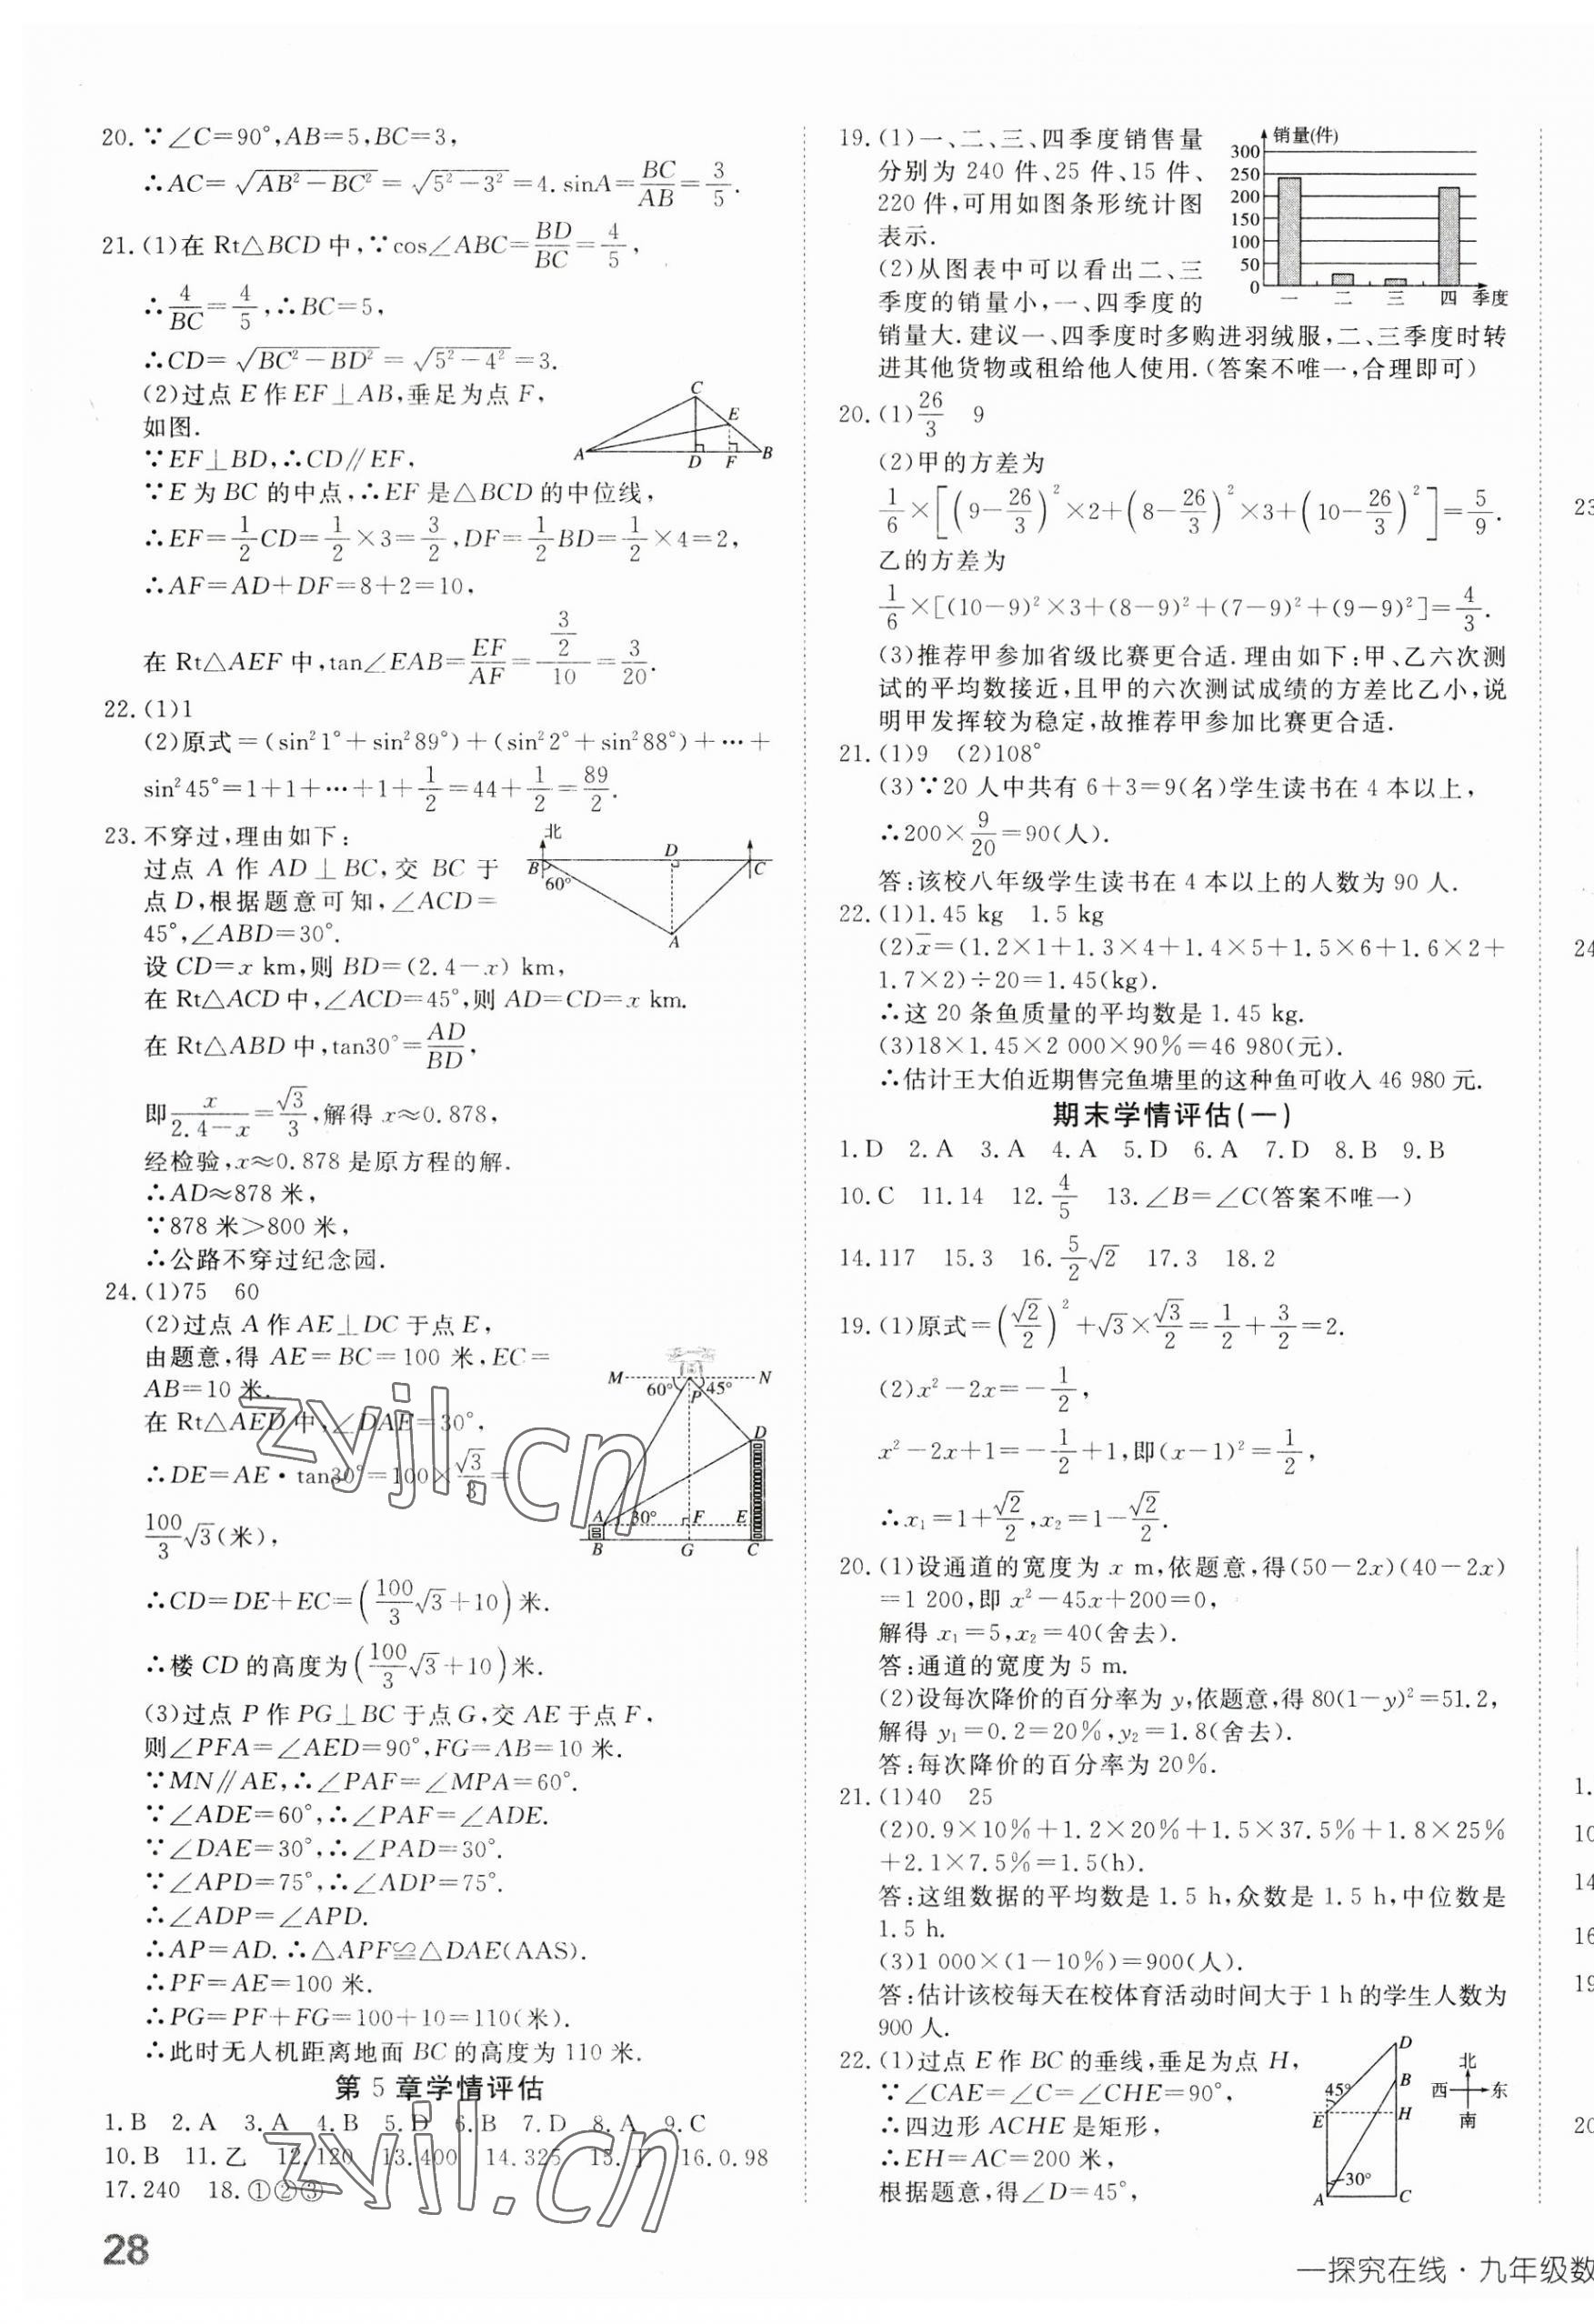 20. ∵∠C=90°,AB=5,BC=3,
∴AC=√(AB²-BC²)=√(5²-3²)=4. sinA=BC/AB=3/5.
21. (1)在 Rt△BCD 中,∵cos∠ABC=BD/BC=4/5,
∴4/BC=4/5,∴BC=5,
∴CD=√(BC²-BD²)=√(5²-4²)=3.
(2)过点 E 作 EF⊥AB,垂足为点 F,
如图.
C E A D F B
∵EF⊥BD,∴CD∥EF,
∵E 为 BC 的中点,∴EF 是△BCD 的中位线,
∴EF=1/2CD=1/2×3=3/2,DF=1/2BD=1/2×4=2,
∴AF=AD+DF=8+2=10,
在 Rt△AEF 中,tan∠EAB=EF/AF=(3/2)/10=3/20.
22. (1)1
(2)原式=(sin²1°+sin²89°)+(sin²2°+sin²88°)+…+
sin²45°=1+1+…+1+1/2=44+1/2=89/2.
23. 不穿过,理由如下:
过点 A 作 AD⊥BC,交 BC 于
点 D,根据题意可知,∠ACD=
45°,∠ABD=30°.
北 B 60° D C A
设 CD=x km,则 BD=(2.4-x) km,
在 Rt△ACD 中,∠ACD=45°,则 AD=CD=x km.
在 Rt△ABD 中,tan30°=AD/BD,
即x/(2.4-x)=√3/3,解得 x≈0.878,
经检验,x≈0.878 是原方程的解.
∴AD≈878 米,
∵878 米>800 米,
∴公路不穿过纪念园.
24. (1)75 60
(2)过点 A 作 AE⊥DC 于点 E,
由题意,得 AE=BC=100 米,EC=
AB=10 米.
在 Rt△AED 中,∠DAE=30°,
∴DE=AE·tan30°=100×√3/3=
100/3√3(米),
M N 60° 45° P D A 30° F E B G C
∴CD=DE+EC=(100/3√3+10)米.
∴楼 CD 的高度为(100/3√3+10)米.
(3)过点 P 作 PG⊥BC 于点 G,交 AE 于点 F,
则∠PFA=∠AED=90°,FG=AB=10 米.
∵MN∥AE,∴∠PAF=∠MPA=60°.
∵∠ADE=60°,∴∠PAF=∠ADE.
∵∠DAE=30°,∴∠PAD=30°.
∵∠APD=75°,∴∠ADP=75°.
∴∠ADP=∠APD.
∴AP=AD. ∴△APF≌△DAE(AAS).
∴PF=AE=100 米.
∴PG=PF+FG=100+10=110(米).
∴此时无人机距离地面 BC 的高度为 110 米.
第 5 章学情评估
1. B 2. A 3. A 4. B 5. D 6. B 7. D 8. A 9. C
10. B 11. 乙 12. 120 13. 400 14. 325 16. 0.98
17. 240 18. ①②③
28
19. (1)一、二、三、四季度销售量
分别为 240 件、25 件、15 件、
220 件,可用如图条形统计图
表示.
销量(件)
300
250
200
150
100
50
0
一 二 三 四 季度
(2)从图表中可以看出二、三
季度的销量小,一、四季度的
销量大. 建议一、四季度时多购进羽绒服,二、三季度时转
进其他货物或租给他人使用.(答案不唯一,合理即可)
20. (1)26/3 9
(2)甲的方差为
1/6×[(9-26/3)²×2+(8-26/3)²×3+(10-26/3)²]=5/9.
乙的方差为
1/6×[(10-9)²×3+(8-9)²+(7-9)²+(9-9)²]=4/3.
(3)推荐甲参加省级比赛更合适. 理由如下:甲、乙六次测
试的平均数接近,且甲的六次测试成绩的方差比乙小,说
明甲发挥较为稳定,故推荐甲参加比赛更合适.
21. (1)9 (2)108°
(3)∵20 人中共有 6+3=9(名)学生读书在 4 本以上,
∴200×9/20=90(人).
答:该校八年级学生读书在 4 本以上的人数为 90 人.
22. (1)1.45 kg 1.5 kg
(2)x̄=(1.2×1+1.3×4+1.4×5+1.5×6+1.6×2+
1.7×2)÷20=1.45(kg).
∴这 20 条鱼质量的平均数是 1.45 kg.
(3)18×1.45×2 000×90%=46 980(元).
∴估计王大伯近期售完鱼塘里的这种鱼可收入 46 980 元.
期末学情评估(一)
1. D 2. A 3. A 4. A 5. D 6. A 7. D 8. B 9. B
10. C 11. 14 12. 4/5 13. ∠B=∠C(答案不唯一)
14. 117 15. 3 16. 5/2√2 17. 3 18. 2
19. (1)原式=(√2/2)²+√3×√3/2=1/2+3/2=2.
(2)x²-2x=-1/2,
x²-2x+1=-1/2+1,即(x-1)²=1/2,
∴x₁=1+√2/2,x₂=1-√2/2.
20. (1)设通道的宽度为 x m,依题意,得(50-2x)(40-2x)
=1 200,即 x²-45x+200=0,
解得 x₁=5,x₂=40(舍去).
答:通道的宽度为 5 m.
(2)设每次降价的百分率为 y,依题意,得 80(1-y)²=51.2,
解得 y₁=0.2=20%,y₂=1.8(舍去).
答:每次降价的百分率为 20%.
21. (1)40 25
(2)0.9×10%+1.2×20%+1.5×37.5%+1.8×25%
+2.1×7.5%=1.5(h).
答:这组数据的平均数是 1.5 h,众数是 1.5 h,中位数是
1.5 h.
(3)1 000×(1-10%)=900(人).
答:估计该校每天在校体育活动时间大于 1 h 的学生人数为
900 人.
22. (1)过点 E 作 BC 的垂线,垂足为点 H,
∵∠CAE=∠C=∠CHE=90°,
∴四边形 ACHE 是矩形,
∴EH=AC=200 米,
根据题意,得∠D=45°,
D 45° B E H 30° A C
北 西 东 南
一探究在线·九年级数
23
24
1.
10
14
16
19
20
zyjl.cn
zyjl.cn